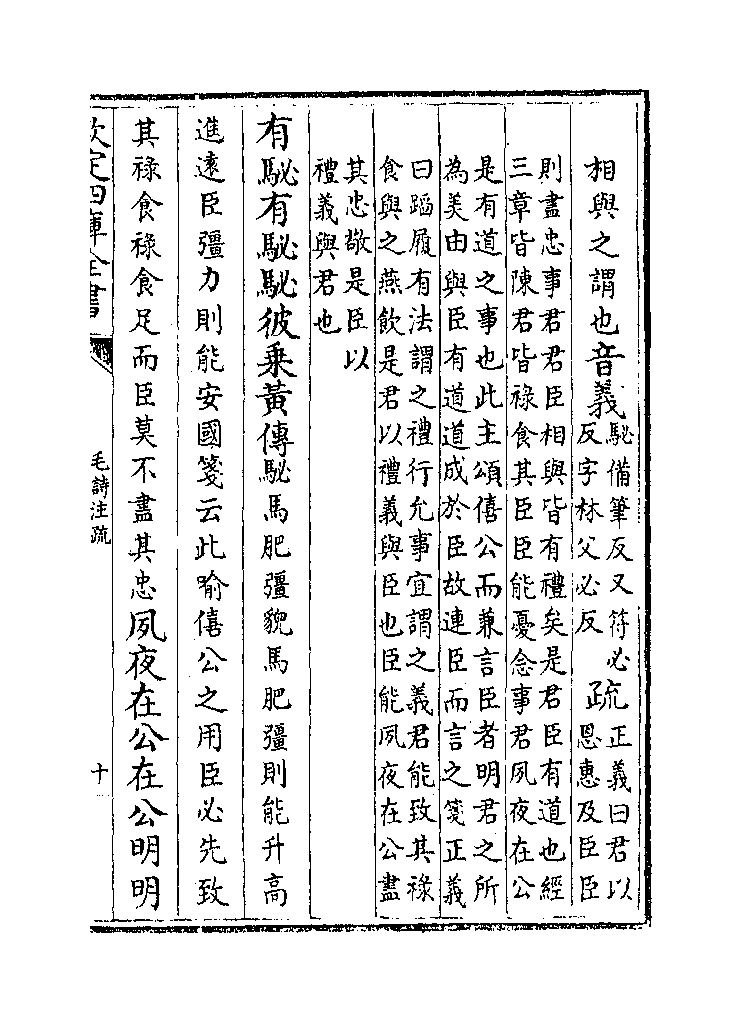 相與之謂也音義駜備筆反又符必
反字林父必反疏正義曰君以
恩惠及臣臣
則盡忠事君君臣相與皆有禮矣是君臣有道也經
三章皆陳君皆祿食其臣臣能憂念事君夙夜在公
是有道之事也此主頌僖公而兼言臣者明君之所
為美由與臣有道道成於臣故連臣而言之箋正義
曰蹈履有法謂之禮行允事宜謂之義君能致其祿
食與之燕飲是君以禮義與臣也臣能夙夜在公盡
其忠敬是臣以
禮義與君也
有駜有駜駜彼乘黃傳駜馬肥彊貌馬肥彊則能升高
進遠臣彊力則能安國箋云此喻僖公之用臣必先致
其祿食祿食足而臣莫不盡其忠夙夜在公在公明明
欽定四庫全書
毛詩注疏
十